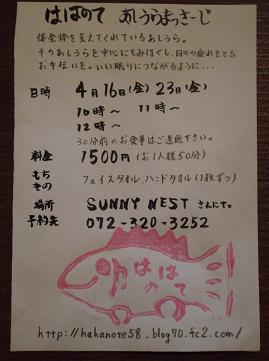 ははのて あしうらまっさーじ
体全体を支えてくれているあしうら。
そのあしうらを中心にもみほぐし、日々の疲れをとる
お手伝いを。いい眠りにつながるように…
日時 4月16日(金) 23日(金)
10時〜 11時〜
12時〜
30分前のお食事はご遠慮下さい。
料金 1500円(お1人様50分)
もちもの フェイスタオル、ハンドタオル(1枚ずつ)
場所 SUNNY NEST さんにて。
予約先 072-320-3252
ははのて
http://hahanote58.blog70.fc2.com/